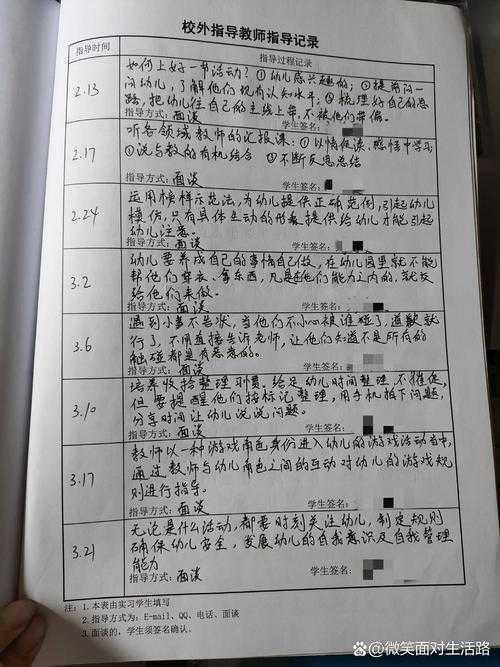 校外指导教师指导记录
指导时间 指导过程记录
2.13
如何上好一节活动？①幼儿感兴趣的；②提前问
问幼儿，了解他们现有认知水平；③梳理好自己的思
路，把幼儿往自己的主线上带，不被他们带偏。
指导方式：面谈 学生签名：
2.17
听各领域教师的汇报课：①以情促读、感悟中学习
②说与教的有机结合 ③不断反思总结
指导方式：面谈 学生签名：
2.24
运用榜样示范法，为幼儿提供正确范例，引起幼儿
模仿，只有具体生动的形象提供给幼儿才能引起
幼儿注意。
指导方式：面谈 学生签名：
3.2
幼儿要养成自己的事情自己做，在幼儿园里就不能
帮他们穿衣、拿东西，凡是他们能力之内的，就交
给他们来做。
指导方式：面谈 学生签名：
3.6
遇到小事不告状，当他们不小心被谁碰了，道歉就
行了，不用直接告诉老师，让他们知道不是所有的
触碰都是有恶意的。
指导方式：面谈 学生签名：
3.10
培养收拾整理习惯，给足幼儿时间整理，不催促，
但要提醒他们按标记整理，用手机拍下问题，
分享时间让幼儿说说问题。
指导方式：面谈 学生签名：
3.17
教师以一种游戏角色身份进入幼儿的游戏活动当中，
通过教师与幼儿角色之间的互动对幼儿的游戏规
则进行指导。
指导方式：面谈 学生签名：
3.21
无论是什么活动，都要时刻关注幼儿，制定规则
确保幼儿安全，发展幼儿的自我意识及自我管理
能力
指导方式：面谈 学生签名：
注：1.本表由实习学生填写
2.指导方式为：E-mail、QQ、电话、面谈
3.面谈的，学生须签名确认。
@微笑面对生活路